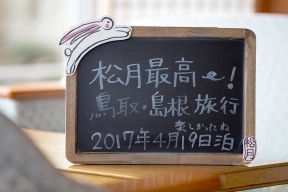 松月最高〜!
鳥取・島根旅行
楽しかったね
2017年4月19日泊
松月